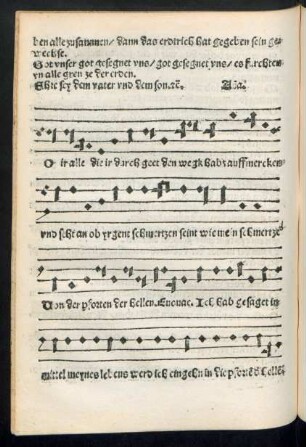 ben alle zusamnen/ dann das erdtrich hat gegeben sein ge-
wechse.
Got vnser got gesegnet vns/ got gesegnet vns/ es furchten
yn alle gren ze der erden.
Ehre sey dem vater vnd dem son. ꝛc. Aña.
O ir alle die ir durch geet den wegk habt auffmercken
vnd seht an ob yrgent schmertzen seint wie mein schmertze
Von der pforten der hellen. Euouae. Ich hab gesaget in
mittel meynes lebens werd ich eingehn in die pforte d hellẽ